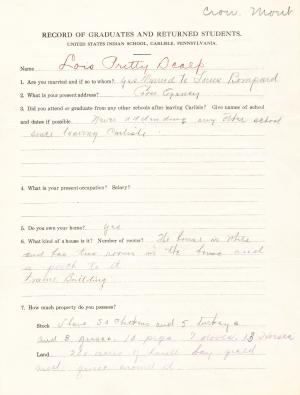 Crow. Mont
RECORD OF GRADUATES AND RETURNED STUDENTS.
UNITED STATES INDIAN SCHOOL, CARLISLE, PENNSYLVANIA.
Name Lois Pretty Scalp
1. Are you married and if so to whom? yes Married to Bompard
2. What is your present address? Crow Agency
3. Did you attend or graduate from any other schools after leaving Carlisle? Give names of school
and dates if possible. Never attending any other school
since leaving Carlisle.
4. What is your present occupation? Salary?
5. Do you own your home? yes
6. What kind of a house is it? Number of rooms? The house is white
and has two rooms in the house and
a porch to it
Frame Building
7. How much property do you possess?
Stock I have 50 chickens and 5 turkeys
and 8 geese. 10 pigs 13 horses
Land 200 acres of land hay
and around it